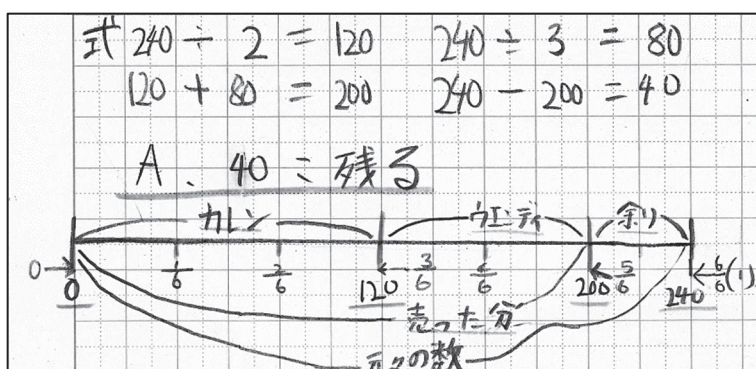 式 240 ÷ 2 = 120 240 ÷ 3 = 80
120 + 80 = 200 240 - 200 = 40
A、40こ残る
カレン ウエンディ 余り
0→ 1/6 2/6 ←3/6 4/6 ←5/6 ←6/6(1)
0 120 200 240
売った分
元々の数